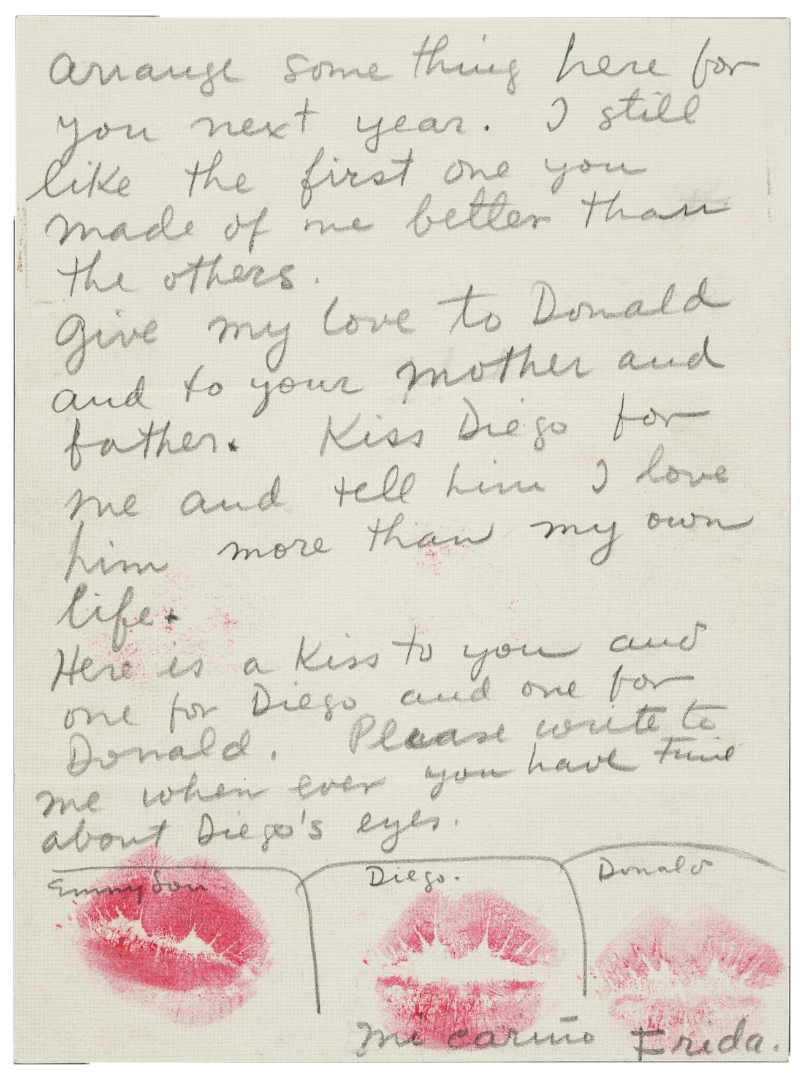 arrange some thing here for
you next year. I still
like the first one you
made of me better than
the others.
Give my love to Donald
and to your mother and
father. Kiss Diego for
me and tell him I love
him more than my own
life.
Here is a kiss to you and
one for Diego and one for
Donald. Please write to
me when ever you have time
about Diego's eyes.
Emmy Lou
Diego.
Donald
Mi cariño Frida.